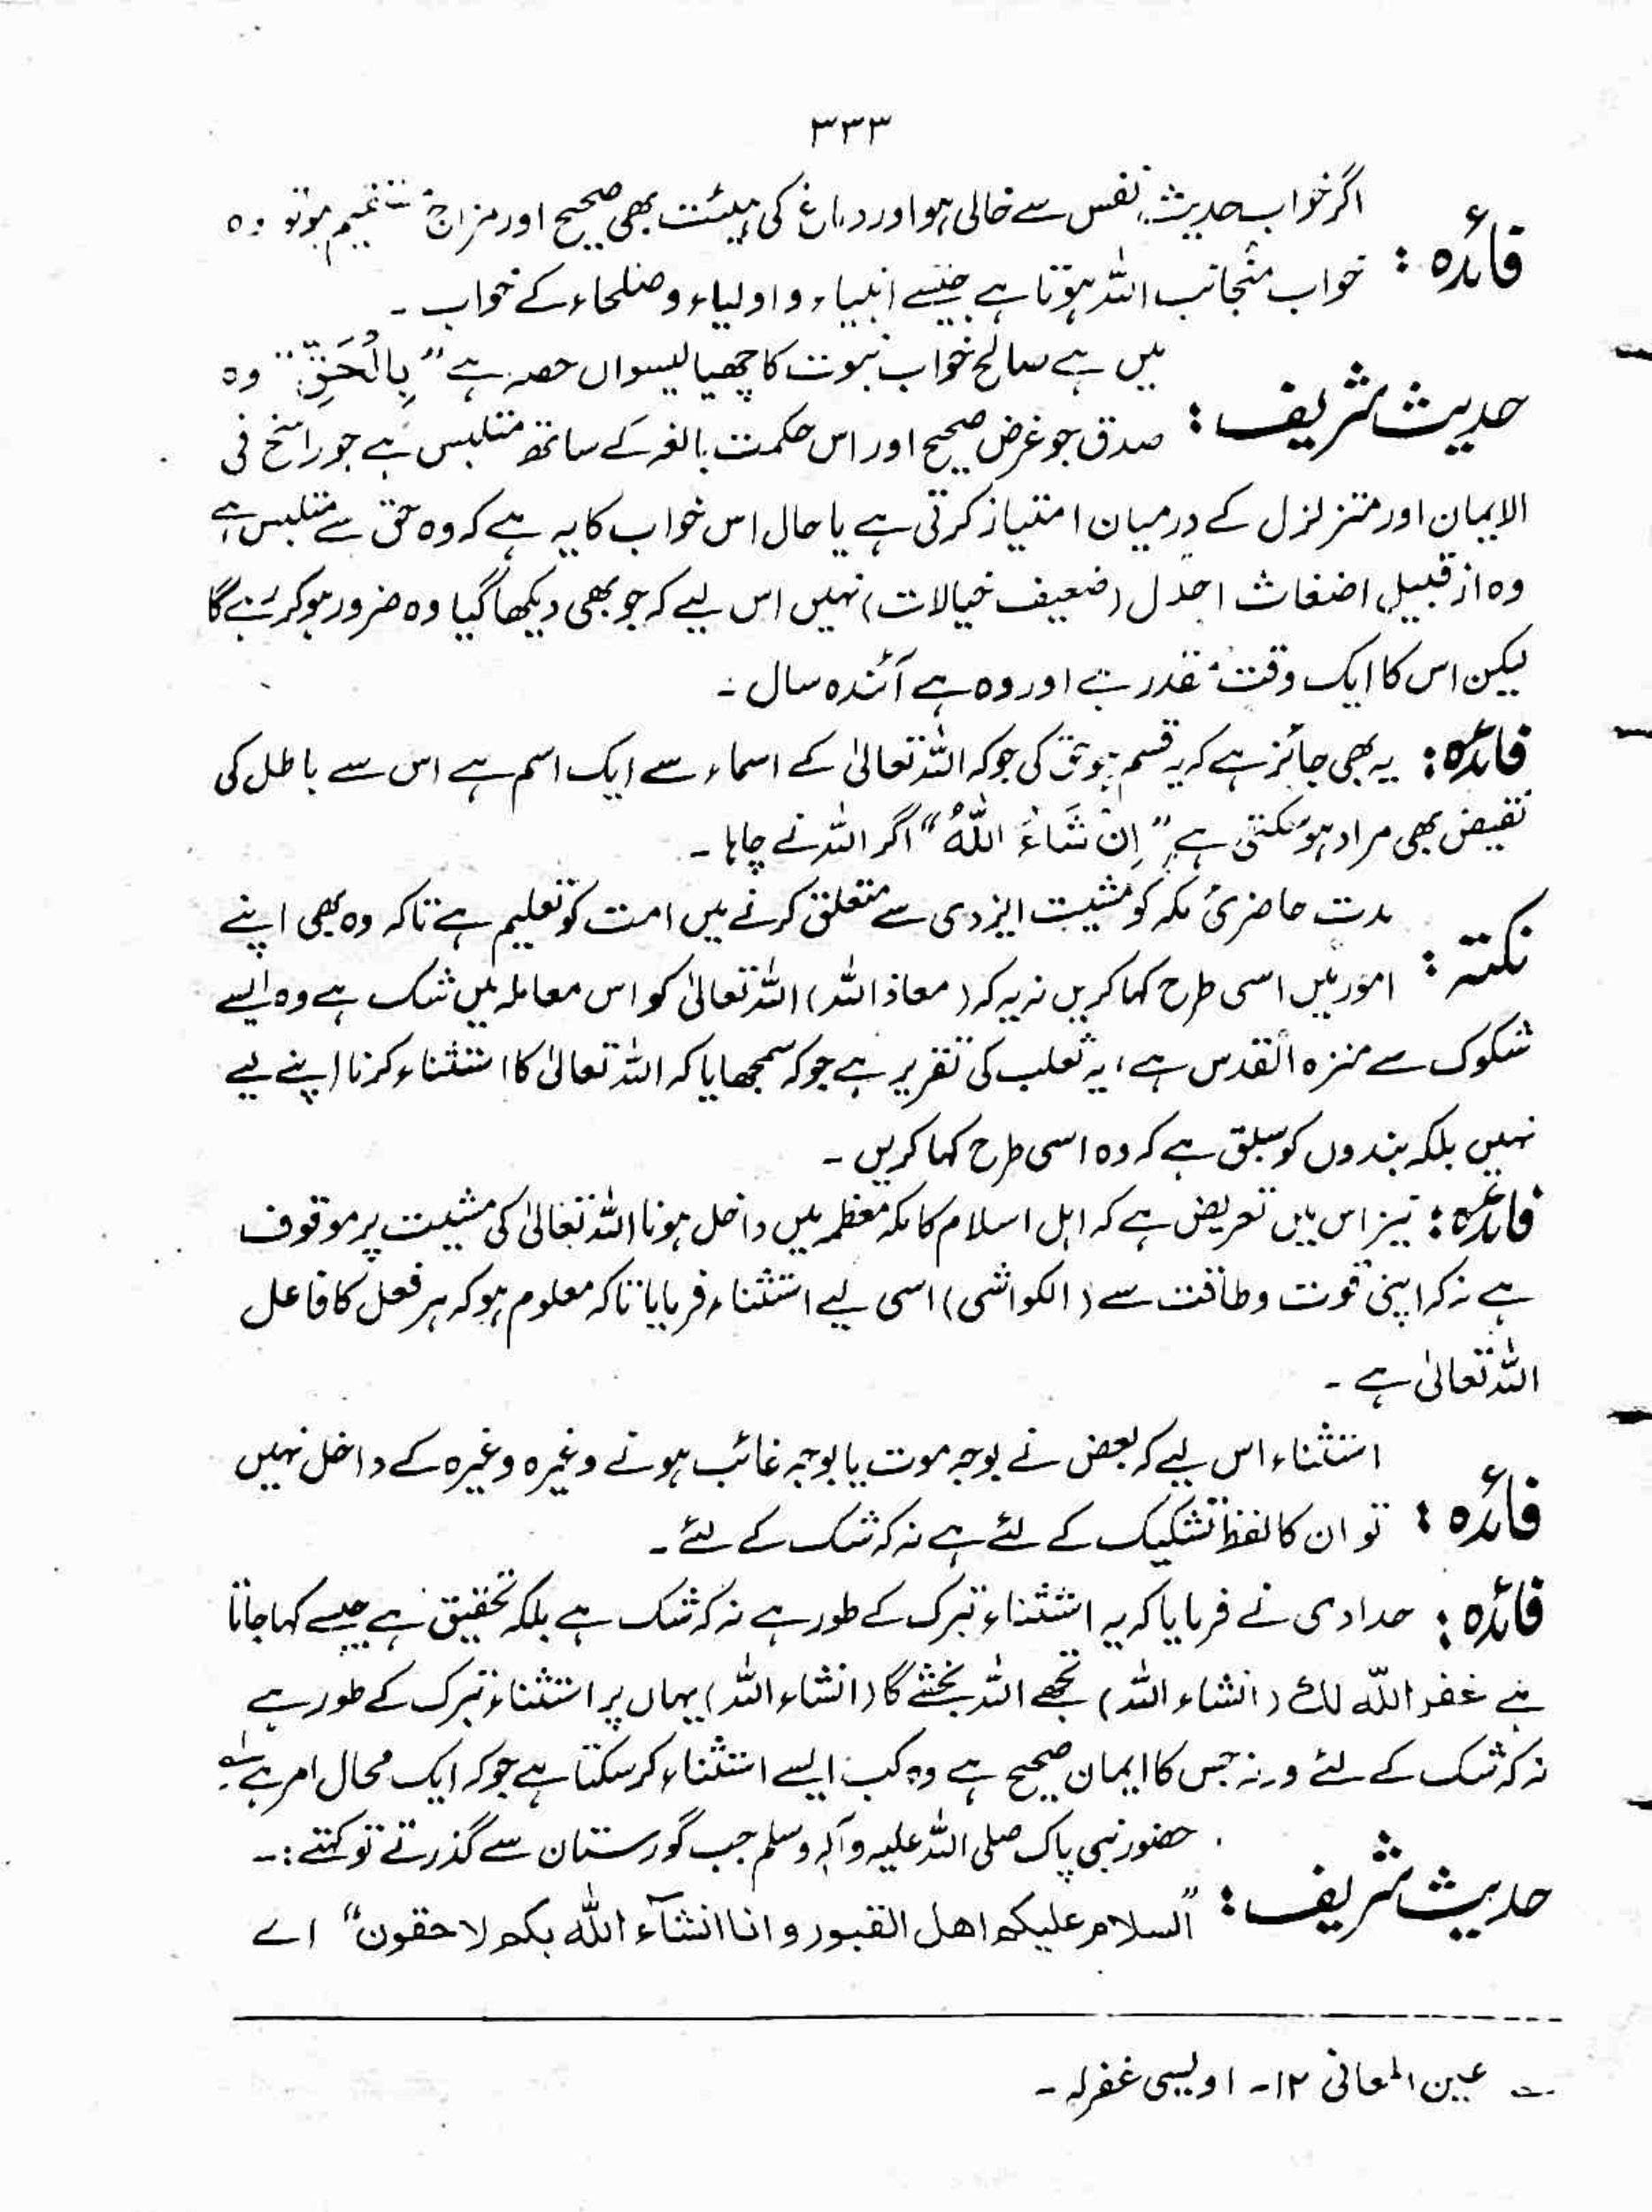 ۳۳۳
اگر خواب حدیث نفس سے خالی ہو اور دماغ کی ہیئت بھی صحیح اور مزاج مستقیم ہو تو وہ
فائدہ : خواب منجانب اللہ ہوتا ہے جیسے انبیاء و اولیاء و صلحاء کے خواب ۔
میں ہے صالح خواب نبوت کا چھیالیسواں حصہ ہے ”بِالْحَقِّ“ وہ
حدیث شریف : صدق جو غرض صحیح اور اس حکمت بالغہ کے ساتھ متلبس ہے جو راسخ فی
الایمان اور متزلزل کے درمیان امتیاز کرتی ہے یا حال اس خواب کا یہ ہے کہ وہ حق سے متلبس ہے
وہ از قبیل اضغاث احلال (ضعیف خیالات) نہیں اس لیے کہ جو بھی دیکھا گیا وہ ضرور ہو کر رہے گا
لیکن اس کا ایک وقت مقدر ہے اور وہ ہے آئندہ سال ۔
فائدہ : یہ بھی جائز ہے کہ یہ قسم ہو حق کی جو کہ اللہ تعالیٰ کے اسماء سے ایک اسم ہے اس سے باطل کی
نقیض بھی مراد ہو سکتی ہے ”اِنْ شَآءَ اللّٰہُ“ اگر اللہ نے چاہا ۔
مدت حاضریٔ مکہ کو مشیت ایزدی سے متعلق کرنے میں امت کو تعلیم ہے تاکہ وہ بھی اپنے
نکتہ : امور میں اسی طرح کہا کریں نہ یہ کہ (معاذ اللہ) اللہ تعالیٰ کو اس معاملہ میں شک ہے وہ ایسے
شکوک سے منزہ القدس ہے ، یہ ثعلب کی تقریر ہے جو کہ سمجھایا کہ اللہ تعالیٰ کا استثناء کرنا اپنے لیے
نہیں بلکہ بندوں کو سبق ہے کہ وہ اسی طرح کہا کریں ۔
فائدہ : نیز اس میں تعریض ہے کہ اہل اسلام کا مکہ معظمہ میں داخل ہونا اللہ تعالیٰ کی مشیت پر موقوف
ہے نہ کہ اپنی قوت و طاقت سے (الکواشی) اسی لیے استثناء فرمایا تاکہ معلوم ہو کہ ہر فعل کا فاعل
اللہ تعالیٰ ہے ۔
استثناء اس لیے کہ بعض نے بوجہ موت یا بوجہ غائب ہونے وغیرہ وغیرہ کے داخل نہیں
فائدہ : تو ان کا لفظ تشکیک کے لئے ہے نہ کہ شک کے لئے ۔
فائدہ : حدادی نے فرمایا کہ یہ استثناء تبرک کے طور ہے نہ کہ شک ہے بلکہ تحقیق ہے جیسے کہا جاتا
ہے غفر اللّٰہ لك (انشاء اللہ) تجھے اللہ بخشے گا (انشاء اللہ) یہاں پر استثناء تبرک کے طور ہے
نہ کہ شک کے لئے ورنہ جس کا ایمان صحیح ہے وہ کب ایسے استثناء کر سکتا ہے جو کہ ایک محال امر ہے
حضور نبی پاک صلی اللہ علیہ وآلہ وسلم جب گورستان سے گذرتے تو کہتے :۔
حدیث شریف : ”السلام علیکم اھل القبور و انا انشآء اللّٰہ بکم لاحقون“ اے
عین المعانی ۱۲۔ اویسی غفرلہ ۔